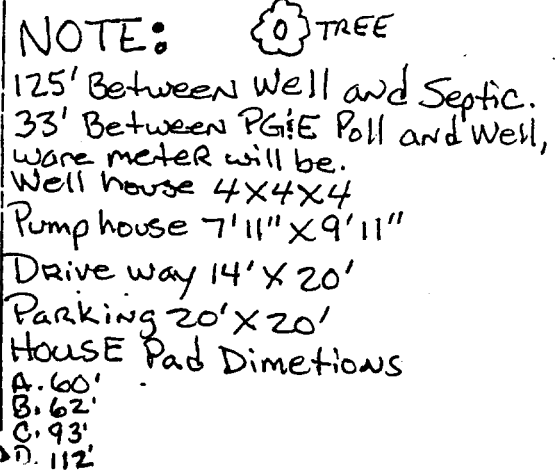 NOTE: TREE
125' Between Well and Septic.
33' Between PG&E Poll and Well,
ware meter will be.
Well house 4X4X4
Pump house 7'11" X 9'11"
Drive way 14' X 20'
Parking 20' X 20'
House Pad Dimetions
A. 60'
B. 62'
C. 93'
D. 112'